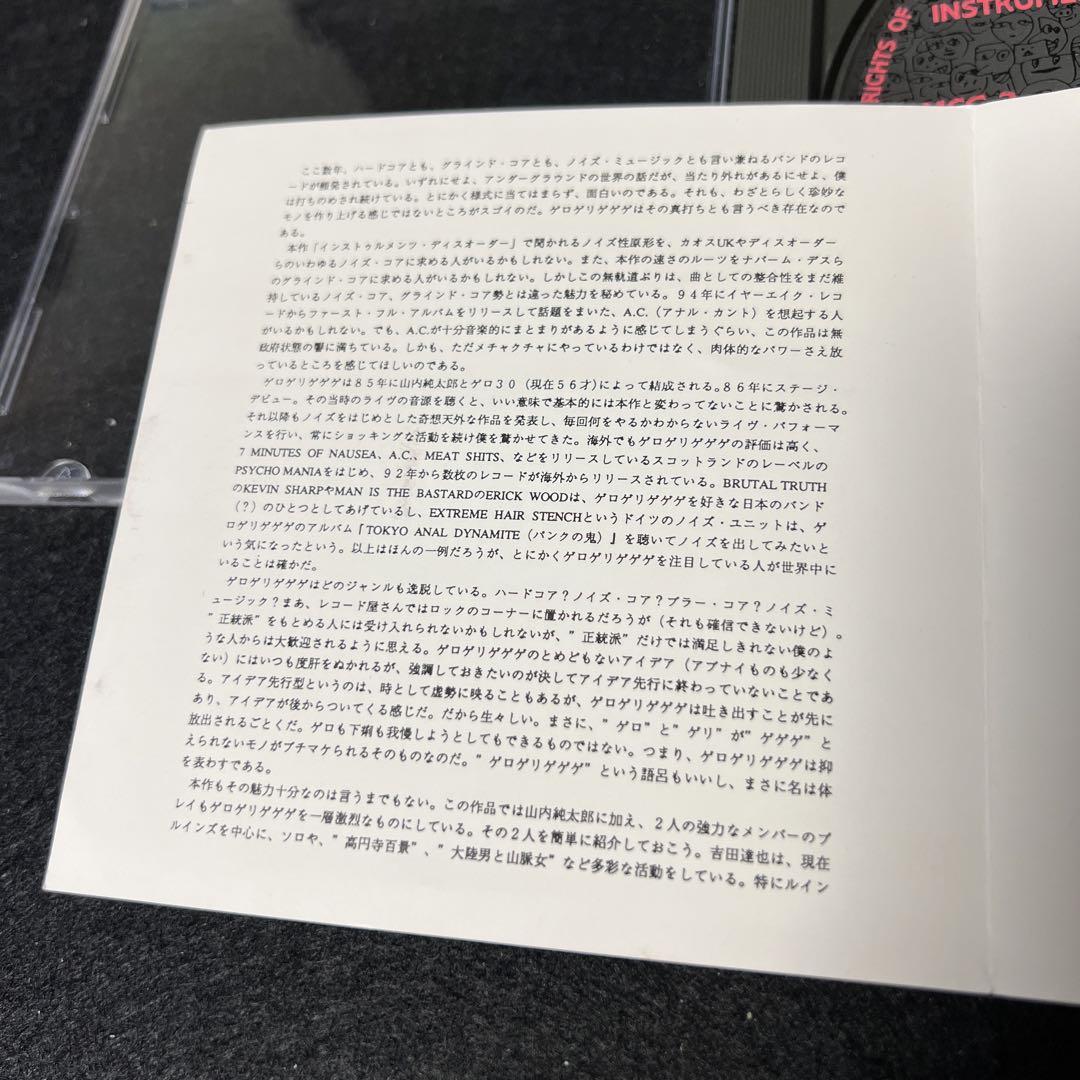 RIGHTS OF INSTRUME
ここ数年、ハードコアとも、グラインド・コアとも、ノイズ・ミュージックとも言い兼ねるバンドのレコ
ードが頻発されている。いずれにせよ、アンダーグラウンドの世界の話だが、当たり外れがあるにせよ、僕
は打ちのめされ続けている。とにかく様式に当てはまらず、面白いのである。それも、わざとらしく珍妙な
モノを作り上げる感じではないところがスゴイのだ。ゲロゲリゲゲゲはその真打ちとも言うべき存在なので
ある。
本作「インストゥルメンツ・ディスオーダー」で聞かれるノイズ性原形を、カオスUKやディスオーダー
らのいわゆるノイズ・コアに求める人がいるかもしれない。また、本作の速さのルーツをナパーム・デスら
のグラインド・コアに求める人がいるかもしれない。しかしこの無軌道ぶりは、曲としての整合性をまだ維
持しているノイズ・コア、グラインド・コア勢とは違った魅力を秘めている。94年にイヤーエイク・レコ
ードからファースト・フル・アルバムをリリースして話題をまいた、A.C.（アナル・カント）を想起する人
がいるかもしれない。でも、A.C.が十分音楽的にまとまりがあるように感じてしまうぐらい、この作品は無
政府状態の響に満ちている。しかも、ただメチャクチャにやっているわけではなく、肉体的なパワーさえ放
っているところを感じてほしいのである。
ゲロゲリゲゲゲは85年に山内純太郎とゲロ30（現在56才）によって結成される。86年にステージ・
デビュー。その当時のライヴの音源を聴くと、いい意味で基本的には本作と変わってないことに驚かされる。
それ以降もノイズをはじめとした奇想天外な作品を発表し、毎回何をやるかわからないライヴ・パフォーマ
ンスを行い、常にショッキングな活動を続け僕を驚かせてきた。海外でもゲロゲリゲゲゲの評価は高く、
7 MINUTES OF NAUSEA、A.C.、MEAT SHITS、などをリリースしているスコットランドのレーベルの
PSYCHO MANIAをはじめ、92年から数枚のレコードが海外からリリースされている。BRUTAL TRUTH
のKEVIN SHARPやMAN IS THE BASTARDのERICK WOODは、ゲロゲリゲゲゲを好きな日本のバンド
（？）のひとつとしてあげているし、EXTREME HAIR STENCHというドイツのノイズ・ユニットは、ゲ
ロゲリゲゲゲのアルバム『TOKYO ANAL DYNAMITE（パンクの鬼）』を聴いてノイズを出してみたいと
いう気になったという。以上はほんの一例だろうが、とにかくゲロゲリゲゲゲを注目している人が世界中に
いることは確かだ。
ゲロゲリゲゲゲはどのジャンルも逸脱している。ハードコア？ノイズ・コア？ブラー・コア？ノイズ・ミ
ュージック？まあ、レコード屋さんではロックのコーナーに置かれるだろうが（それも確信できないけど）。
”正統派”をもとめる人には受け入れられないかもしれないが、”正統派”だけでは満足しきれない僕のよ
うな人からは大歓迎されるように思える。ゲロゲリゲゲゲのとめどもないアイデア（アブナイものも少なく
ない）にはいつも度肝をぬかれるが、強調しておきたいのが決してアイデア先行に終わっていないことであ
る。アイデア先行型というのは、時として虚勢に映ることもあるが、ゲロゲリゲゲゲは吐き出すことが先に
あり、アイデアが後からついてくる感じだ。だから生々しい。まさに、”ゲロ”と”ゲリ”が”ゲゲゲ”と
放出されるごとくだ。ゲロも下痢も我慢しようとしてもできるものではない。つまり、ゲロゲリゲゲゲは抑
えられないモノがブチマケられるそのものなのだ。”ゲロゲリゲゲゲ”という語呂もいいし、まさに名は体
を表わすである。
本作もその魅力十分なのは言うまでもない。この作品では山内純太郎に加え、2人の強力なメンバーのプ
レイもゲロゲリゲゲゲを一層激烈なものにしている。その2人を簡単に紹介しておこう。吉田達也は、現在
ルインズを中心に、ソロや、”高円寺百景”、”大陸男と山脈女”など多彩な活動をしている。特にルイン